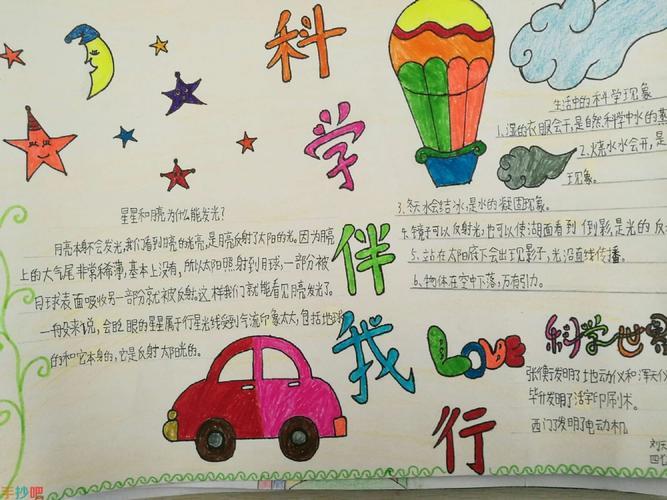 科
学
伴
我
行
星星和月亮为什么能发光?
月亮本身不会发光,我们看到月亮的光亮,是月亮反射了太阳的光。因为月亮
上的大气层非常稀薄,基本上没有,所以太阳照射到月球,一部分被
月球表面吸收另一部分就被反射。这样我们就能看见月亮发光了。
一般来说,会眨眼的星星属于行星光线受到气流印象太大,包括地球
的和它本身的,它是反射太阳光的。
生活中的科学现象
1.湿的衣服会干,是自然科学中水的蒸
2.烧水水会开,是
现象。
3.冬天水会结冰,是水的凝固现象。
4.镜子可以反射光,也可以使湖面看到倒影,是光的反
5.站在太阳底下会出现影子,光沿直线传播。
6.物体在空中下落,万有引力。
LOVE
科学世界
张衡发明了地动仪和浑天仪
毕升发明了活字印刷术。
西门子发明了电动机
刘天
四
手抄吧